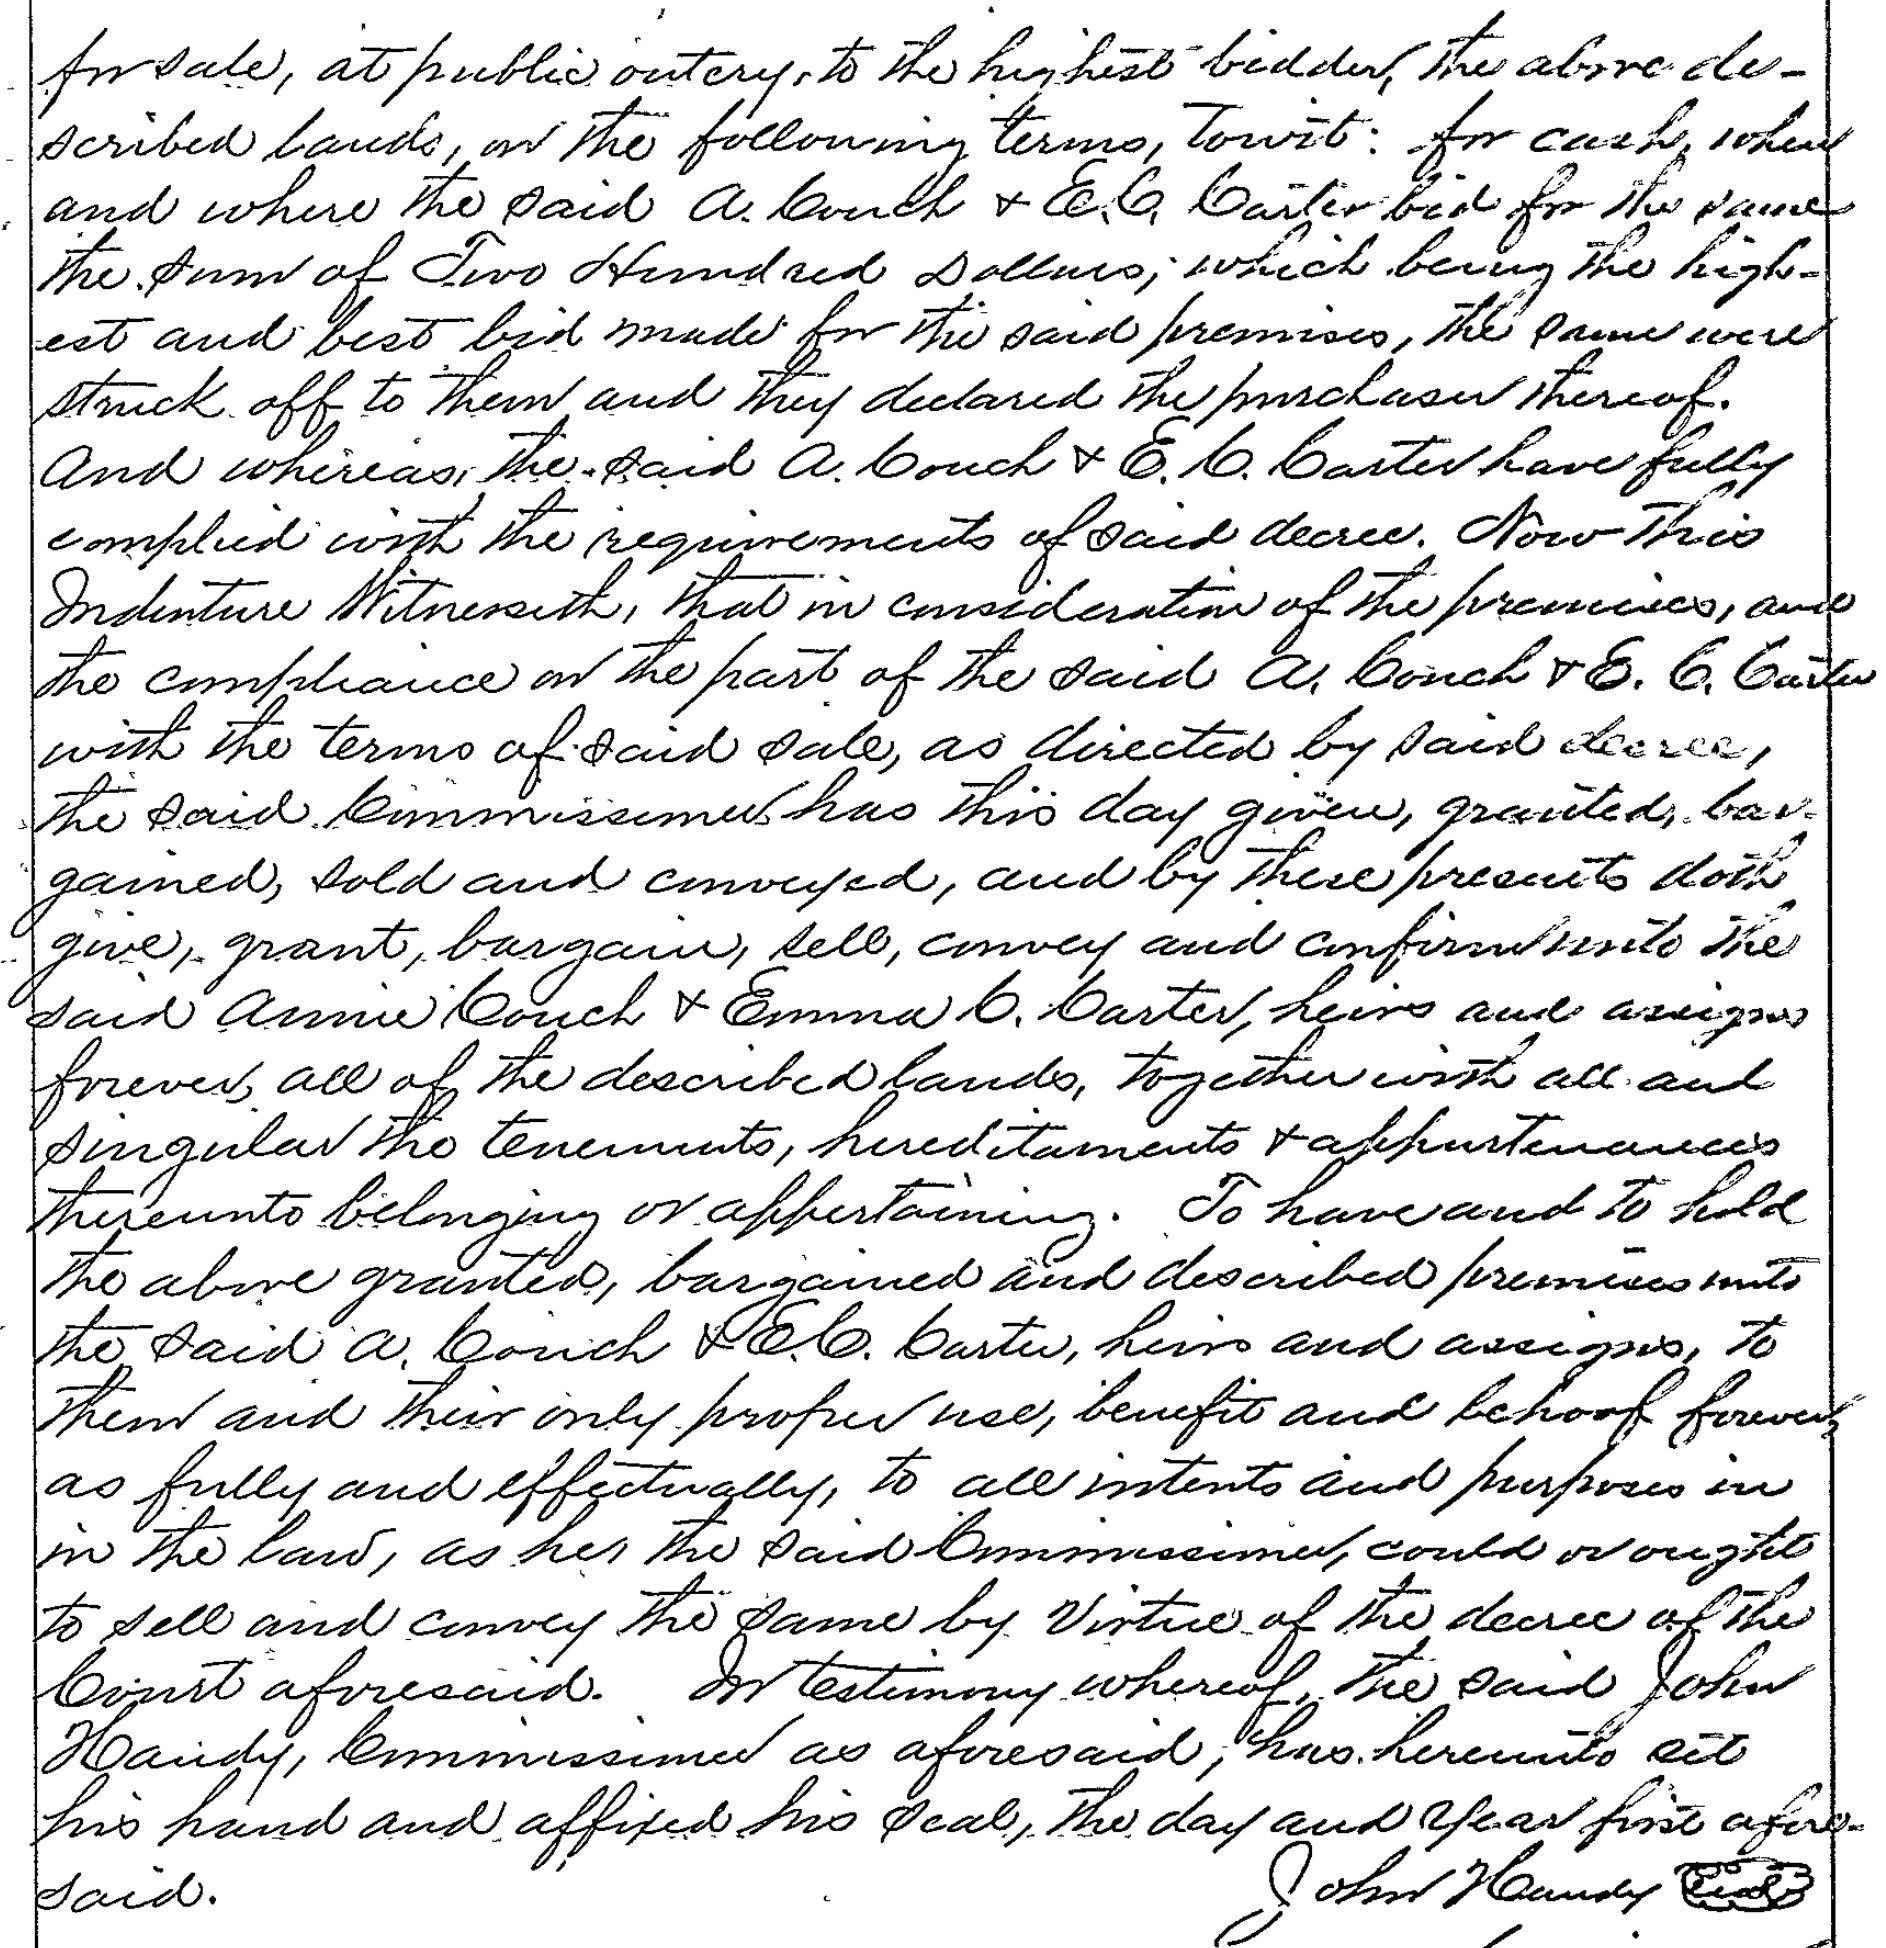 for sale, at public outcry, to the highest bidder, the above de-
scribed lands, on the following terms, towit: for cash, when
and where the said A. Couch & E.C. Carter bid for the same
the sum of Two Hundred Dollars; which being the high-
est and best bid made for the said premises, the same were
struck off to them and they declared the purchaser thereof.
And whereas, the said A. Couch & E. C. Carter have fully
complied with the requirements of said decree. Now this
Indenture Witnesseth, that in consideration of the premises, and
the compliance on the part of the said A. Couch & E. C. Carter
with the terms of said sale, as directed by said decree,
the said Commissioner has this day given, granted, bar-
gained, sold and conveyed, and by these presents doth
give, grant, bargain, sell, convey and confirm unto the
said Annie Couch & Emma C. Carter, heirs and assigns
forever, all of the described lands, together with all and
singular the tenements, hereditaments & appurtenances
thereunto belonging or appertaining. To have and to hold
the above granted, bargained and described premises unto
the said A. Couch & E.C. Carter, heirs and assigns, to
them and their only proper use, benefit and behoof forever,
as fully and effectually, to all intents and purposes in
in the law, as her the said Commissioner, could or ought
to sell and convey the same by virtue of the decree of the
Court aforesaid. In testimony whereof, the said John
Handy, Commissioner as aforesaid, has hereunto set
his hand and affixed his seal, the day and year first afore-
said. John Handy Seal